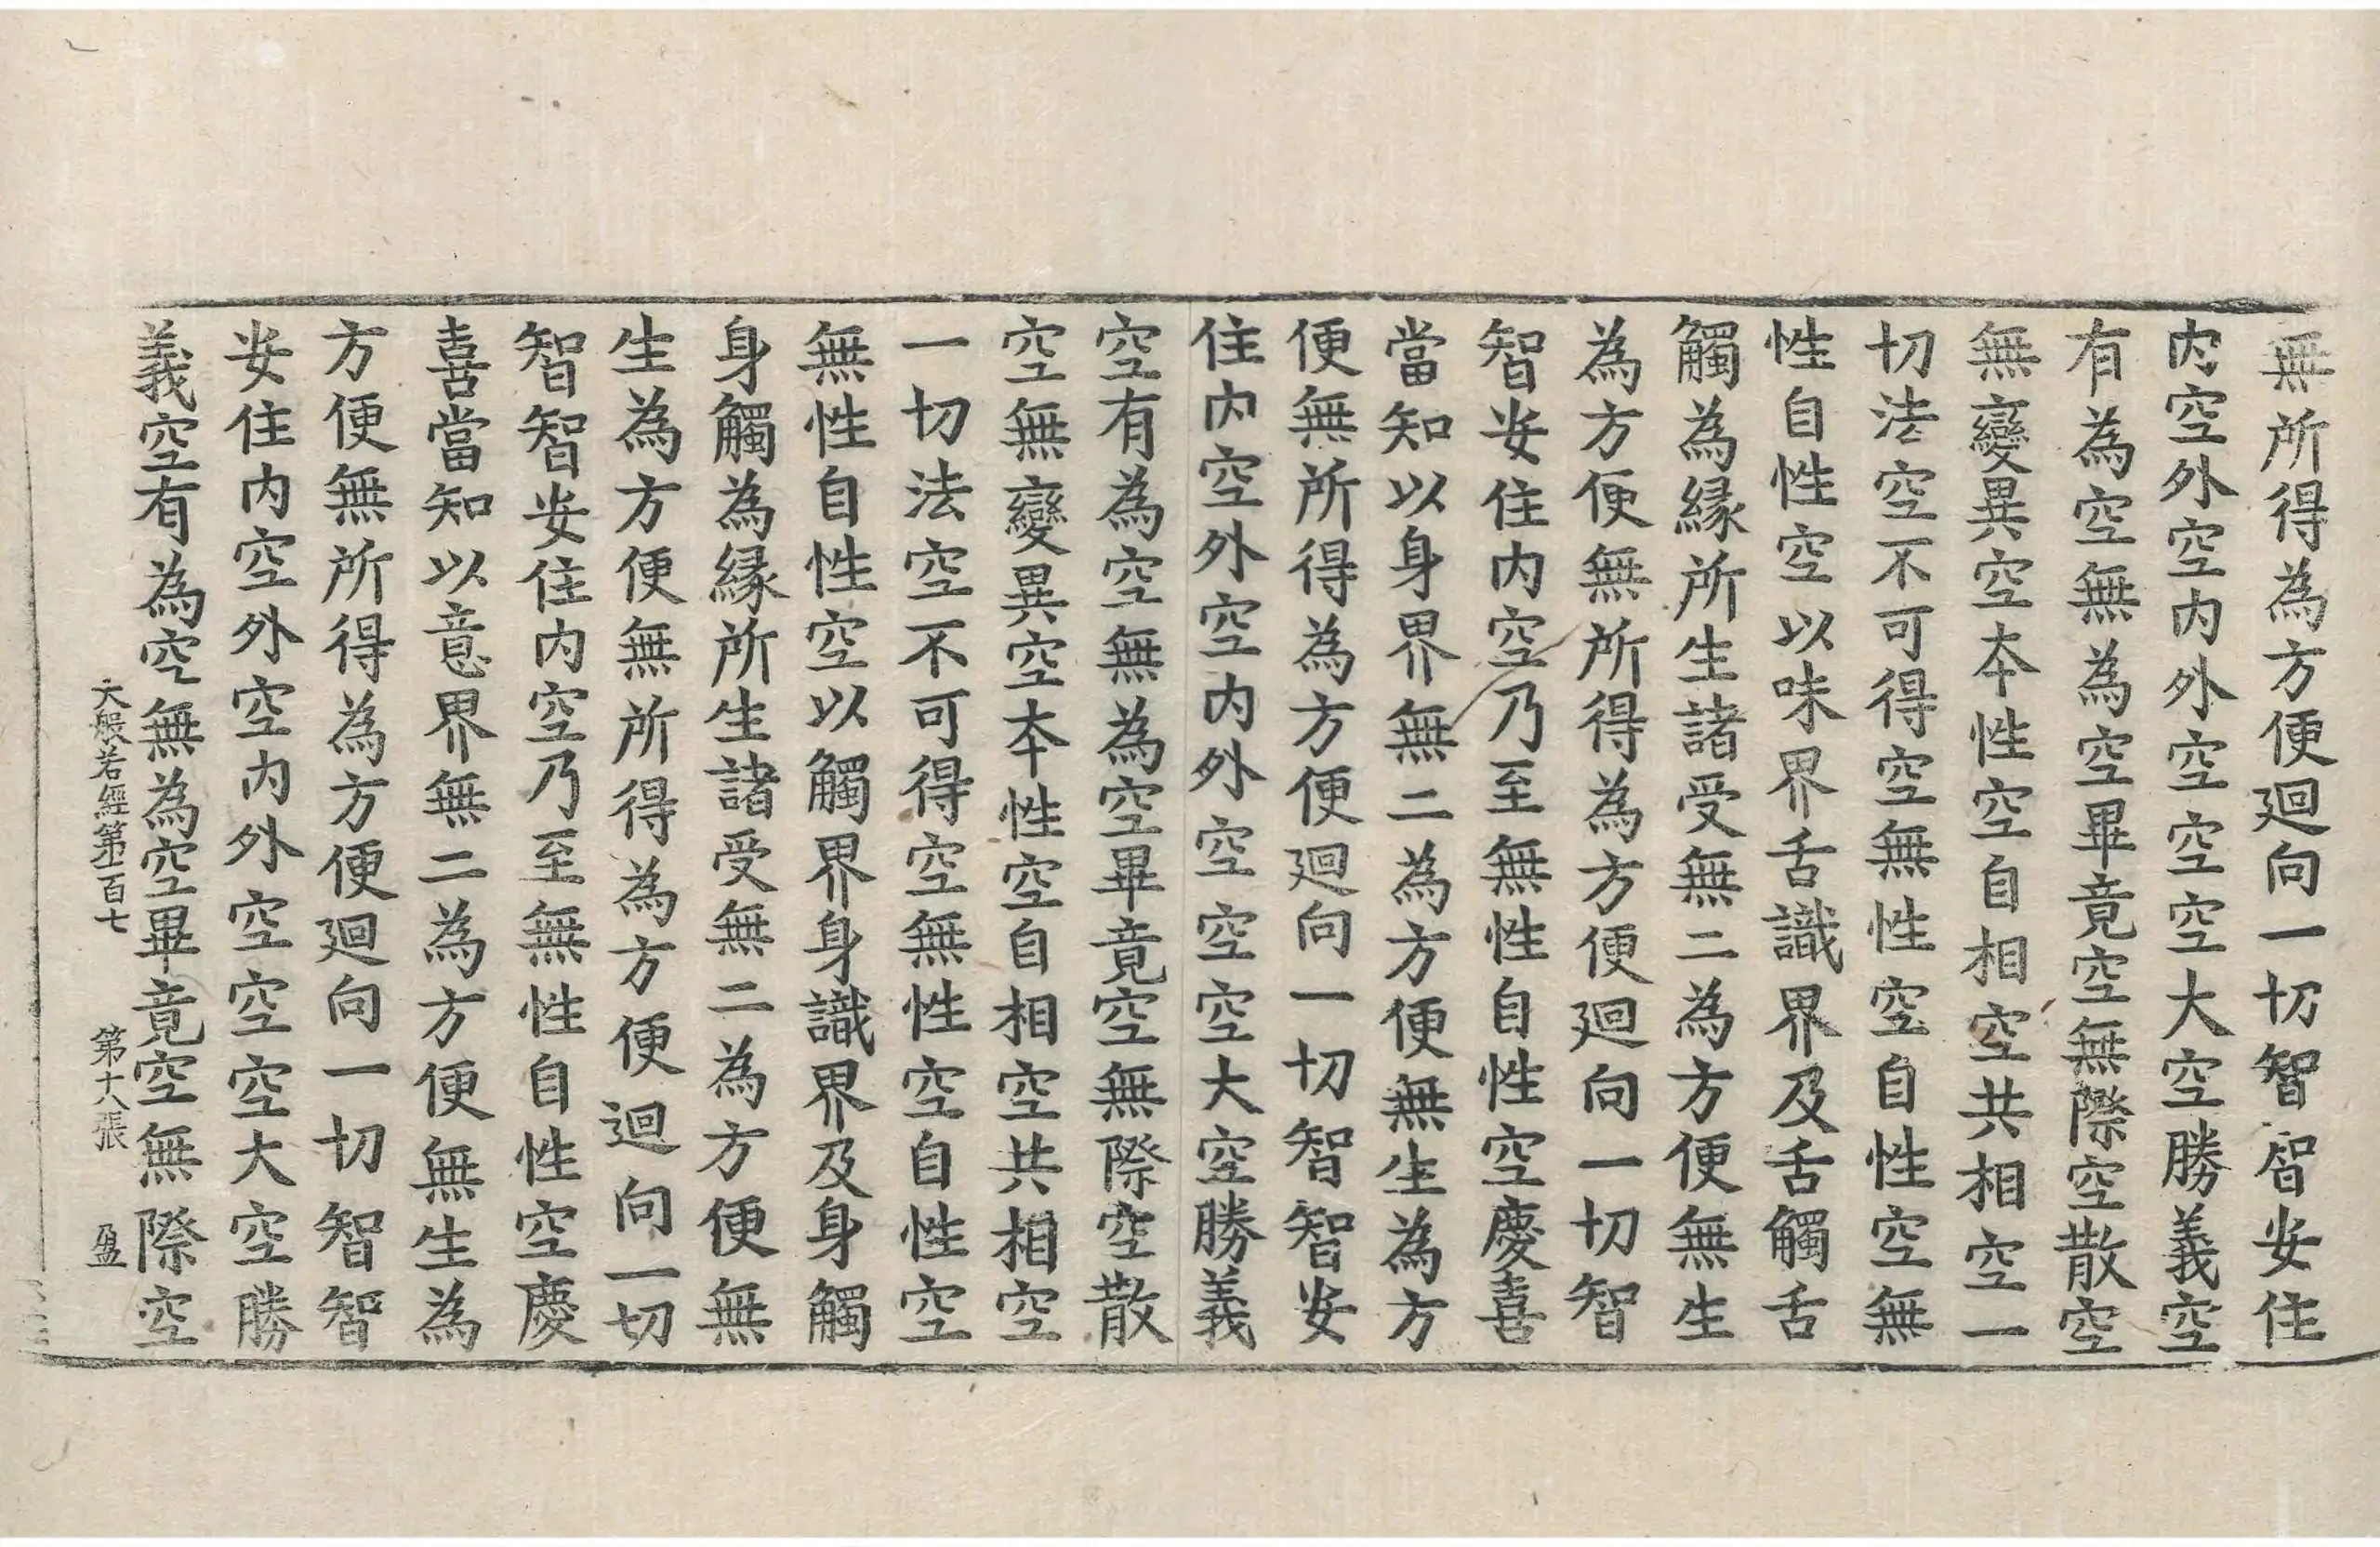 無所得為方便廻向一切智智安住
内空外空内外空空空大空勝義空
有為空無為空畢竟空無際空散空
無變異空本性空自相空共相空一
切法空不可得空無性空自性空無
性自性空以味界舌識界及舌觸舌
觸為縁所生諸受無二為方便無生
為方便無所得為方便廻向一切智
智安住内空乃至無性自性空慶喜
當知以身界無二為方便無生為方
便無所得為方便廻向一切智智安
住内空外空内外空空空大空勝義
空有為空無為空畢竟空無際空散
空無變異空本性空自相空共相空
一切法空不可得空無性空自性空
無性自性空以觸界身識界及身觸
身觸為縁所生諸受無二為方便無
生為方便無所得為方便廻向一切
智智安住内空乃至無性自性空慶
喜當知以意界無二為方便無生為
方便無所得為方便廻向一切智智
安住内空外空内外空空空大空勝
義空有為空無為空畢竟空無際空
大般若經第一百七 第十八張 盈